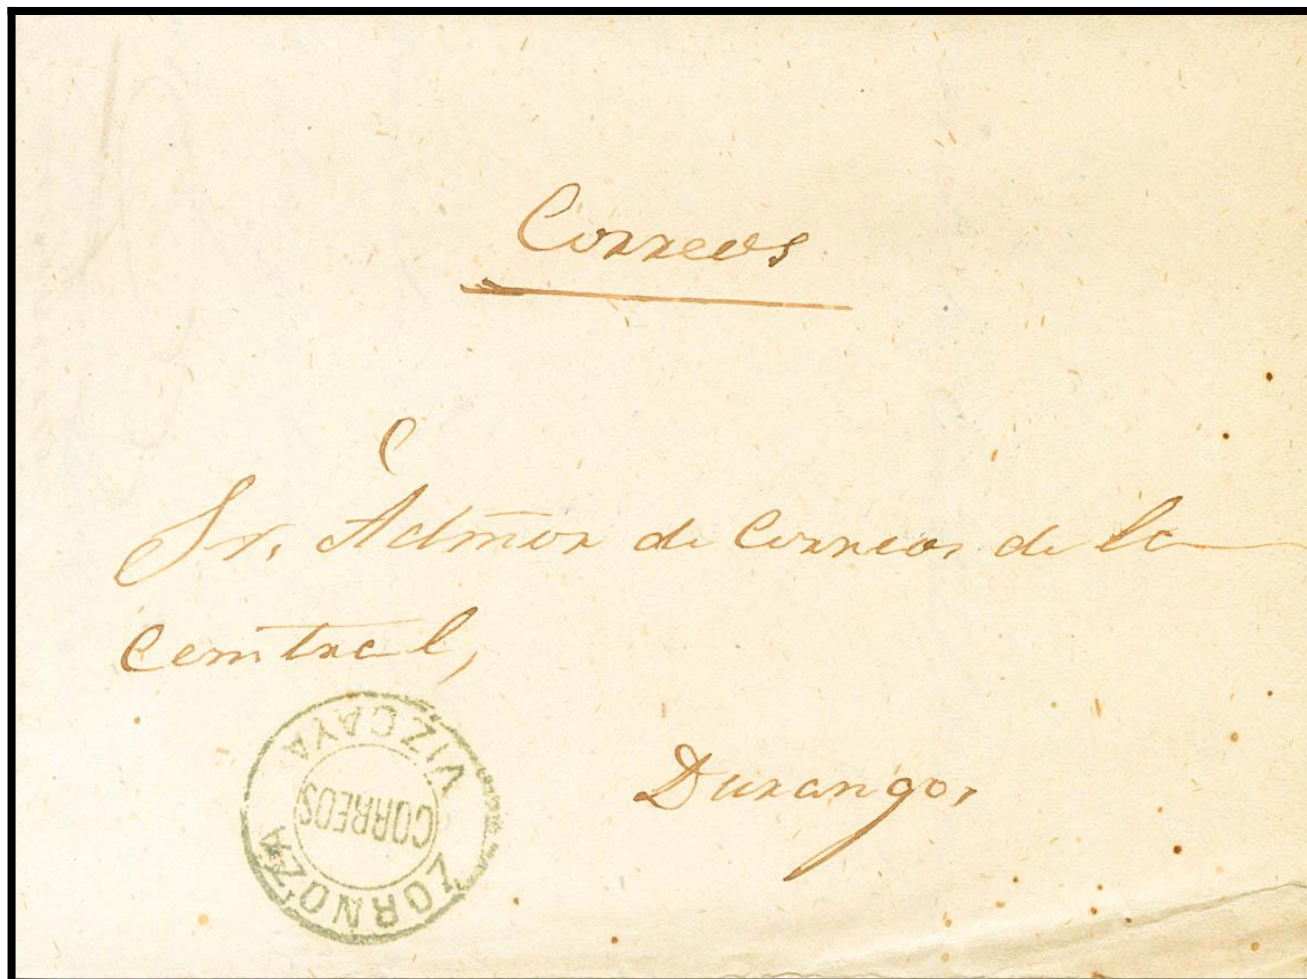 Correos
Sr. Admõr de Correos de la
Central,
Durango,
ZORNOZA
CORREOS
VIZCAYA